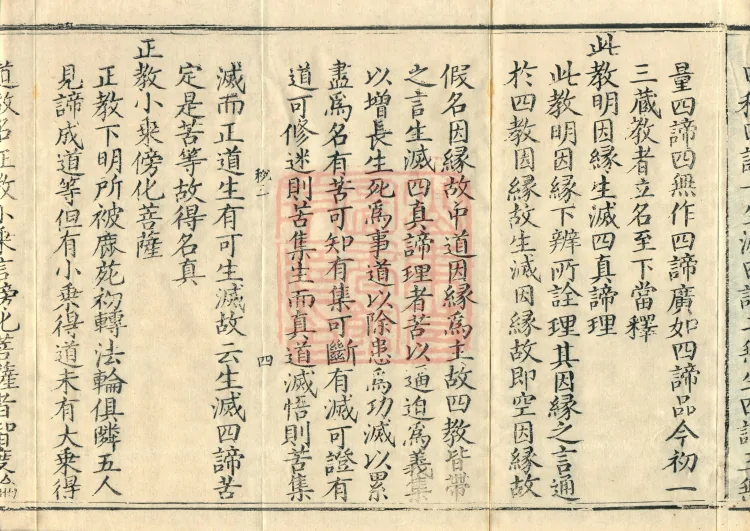 量四諦四無作四諦廣如四諦品今初一
三藏教者立名至下當釋
此教明因緣生滅四真諦理
此教明因緣下辨所詮理其因緣之言通
於四教因緣故生滅因緣故即空因緣故
假名因緣故中道因緣為主故四教皆帶
之言生滅四真諦理者苦以逼迫為義集
以增長生死為事道以除患為功滅以累
盡為名有苦可知有集可斷有滅可證有
道可修迷則苦集生而真道滅悟則苦集
四
滅而正道生有可生滅故云生滅四諦苦
定是苦等故得名真
正教小乘傍化菩薩
正教下明所被鹿苑初轉法輪俱隣五人
見諦成道等但有小乘得道未有大乘得
道故名正教小乘言傍化菩薩者智度